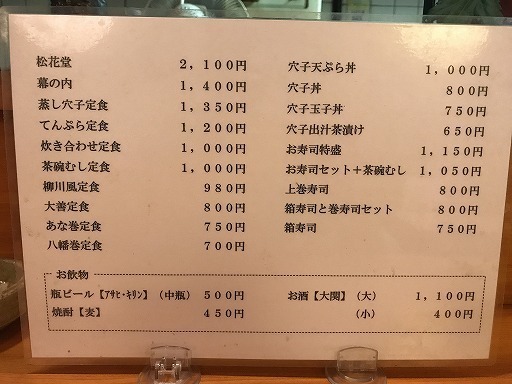 松花堂 2,100円
幕の内 1,400円
蒸し穴子定食 1,350円
てんぷら定食 1,200円
炊き合わせ定食 1,000円
茶碗むし定食 1,000円
柳川風定食 980円
大善定食 800円
あな巻定食 750円
八幡巻定食 700円
穴子天ぷら丼 1,000円
穴子丼 800円
穴子玉子丼 750円
穴子出汁茶漬け 650円
お寿司特盛 1,150円
お寿司セット+茶碗むし 1,050円
上巻寿司 800円
箱寿司と巻寿司セット 800円
箱寿司 750円
お飲物
瓶ビール【アサヒ・キリン】(中瓶) 500円
焼酎【麦】 450円
お酒【大関】(大) 1,100円
(小) 400円